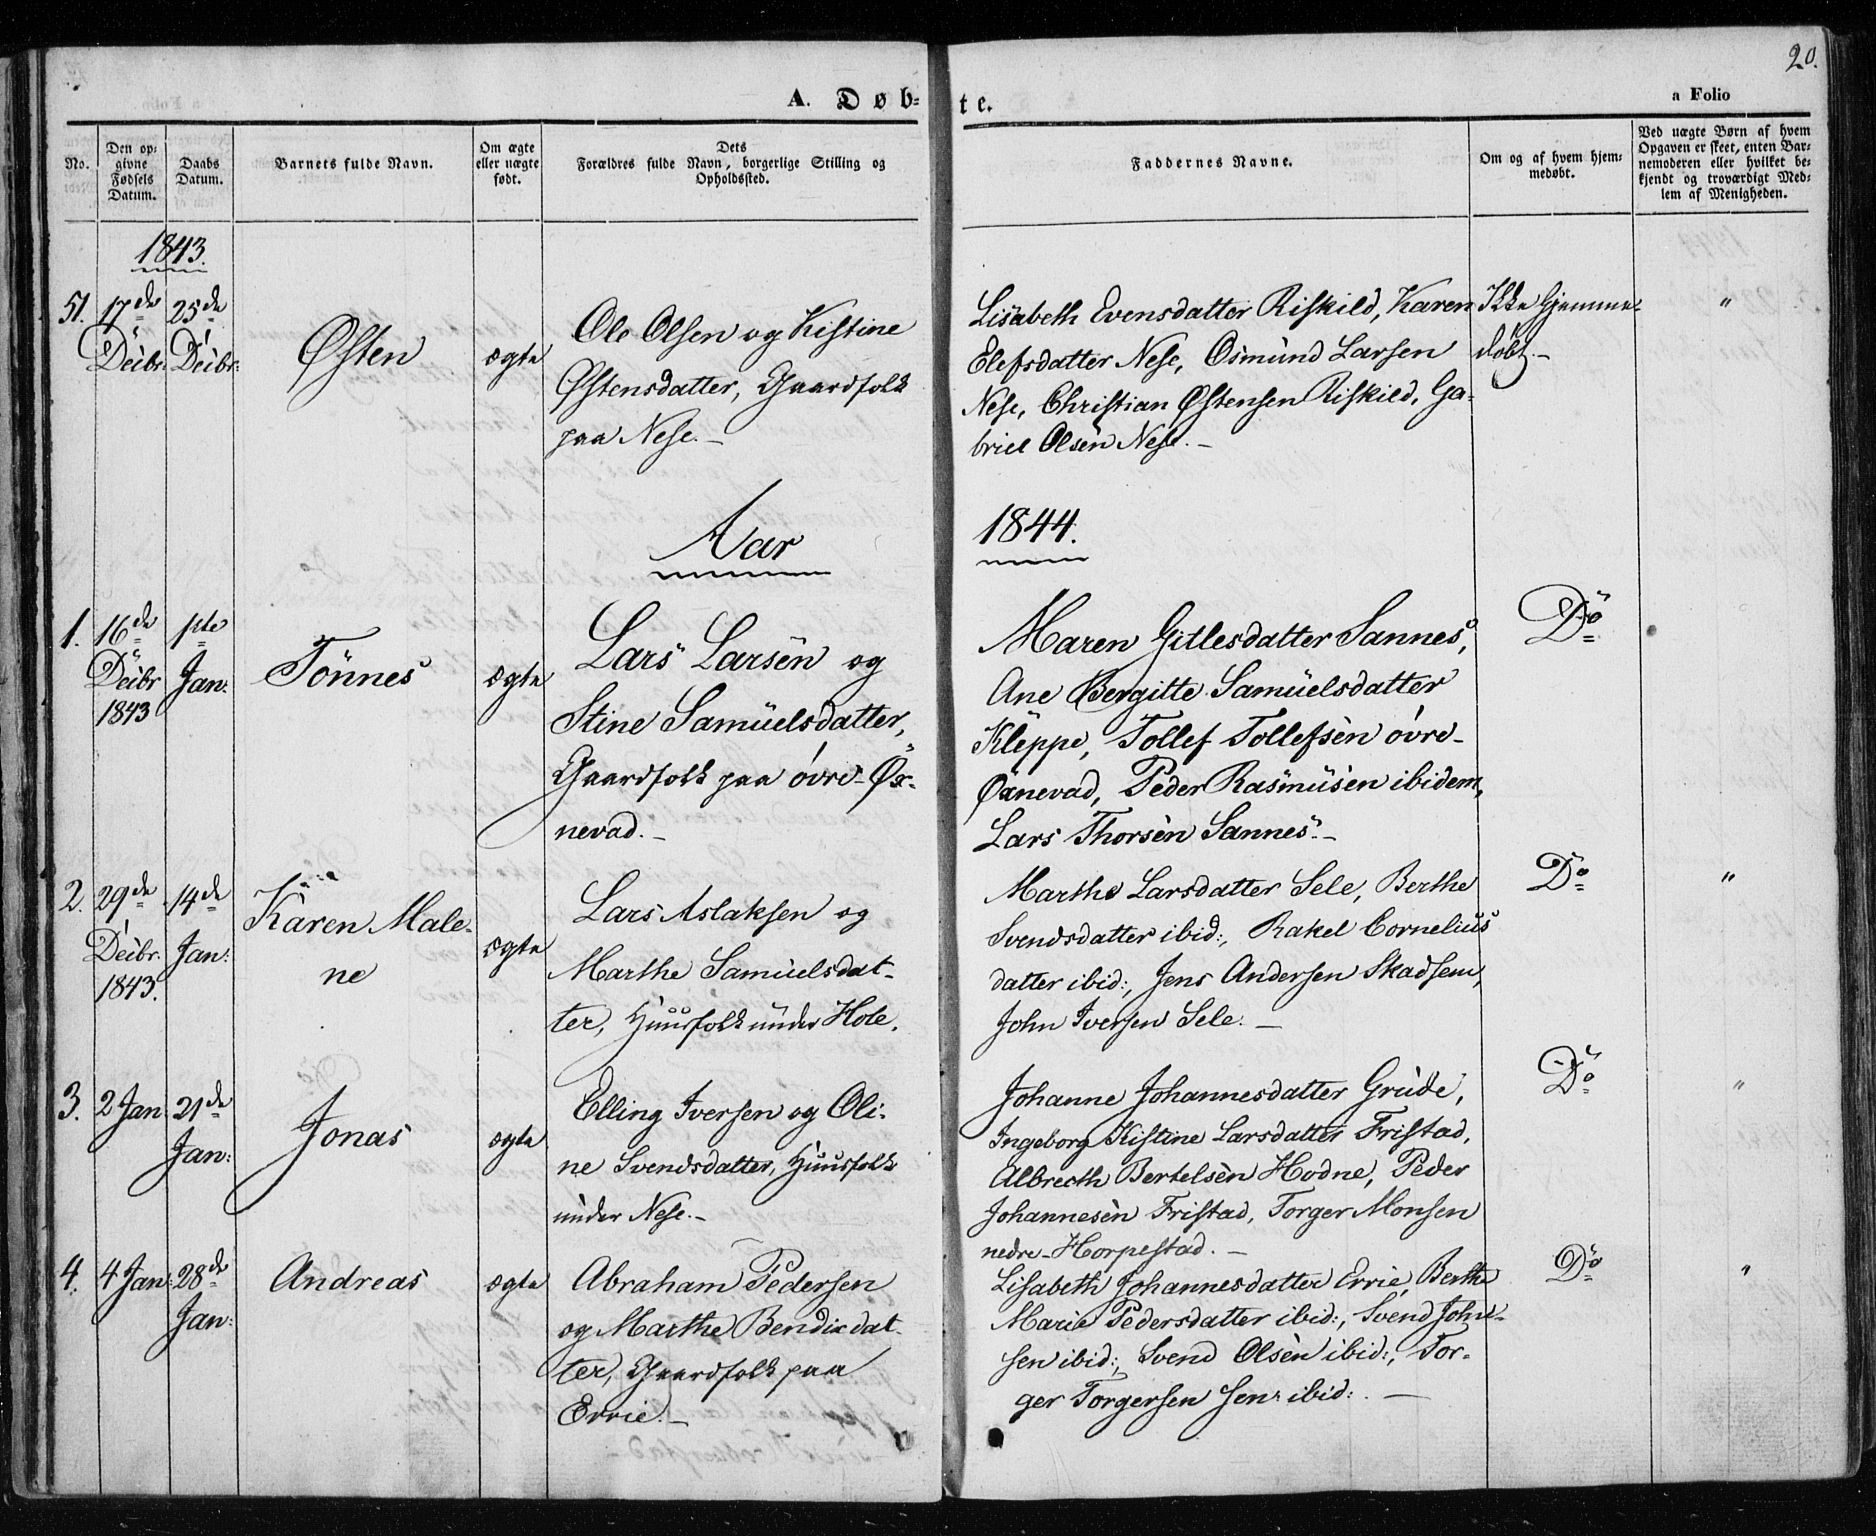 20.
A. Døb-
te.
a Folio
No.
Den op-
givne
Fødsels
Datum.
Daabs
Datum.
Barnets fulde Navn.
Om ægte
eller uægte
født.
Dets
Forældres fulde Navn, borgerlige Stilling og
Opholdssted.
Faddernes Navne.
Om og af hvem hjem-
medøbt.
Ved uægte Børn af hvem
Opgaven er skeet, enten Bar-
nemoderen eller hvilket be-
kjendt og troværdigt Med-
lem af Menigheden.
1843.
51.
17de
Decbr:
25de
Decbr:
Østen
ægte
Ole Olsen og Kistine
Østensdatter, Gaardfolk
paa Nese.-
Lisabeth Evensdatter Riskild, Karen
Elefsdatter Nese, Osmund Larsen
Nese, Christian Østensen Riskild, Ga-
briel Olsen Nese.-
Ikke Hjemme-
døbt.-
"
Aar
1844.
1.
16de
Decbr
1843
1ste
Jan:
Tönnes
ægte
Lars Larsen og
Stine Samuelsdatter,
Gaardfolk paa övre-Øx-
nevad.-
Maren Gitlesdatter Sannes,
Ane Bergitte Samuelsdatter
Kleppe, Tollef Tollefsen övre-
Øxnevad, Peder Rasmusen ibidem,
Lars Thorsen Sannes.-
Do
2.
29de
Decbr.
1843.
14de
Jan:
Karen Male-
ne
ægte
Lars Aslaksen og
Marthe Samuelsdat-
ter, Huusfolk under Hole.
Marthe Larsdatter Sele, Berthe
Svendsdatter ibid:, Rakel Cornelius
datter ibid:, Jens Andersen Skadsem,
John Iversen Sele.-
Do
"
3.
2 Jan
21de
Jan:
Jonas
ægte
Elling Iversen og Oli-
ne Svendsdatter, Huusfolk
under Nese.-
Johanne Johannesdatter Grude,
Ingeborg Kistine Larsdatter Fristad,
Albrecth Bertelsen Hodne, Peder
Johannesen Fristad, Torger Monsen
nedre-Horpestad.-
Do
"
4.
4 Jan:
28de
Jan:
Andreas
ægte
Abraham Pedersen
og Marthe Bendixdat-
ter, Gaardfolk paa
Errie.-
Lisabeth Johannesdatter Errie, Berthe
Marie Pedersdatter ibid:, Svend John-
sen ibid:, Svend Olsen ibid:, Tor-
ger Torgersen senr ibid:.-
Do
"